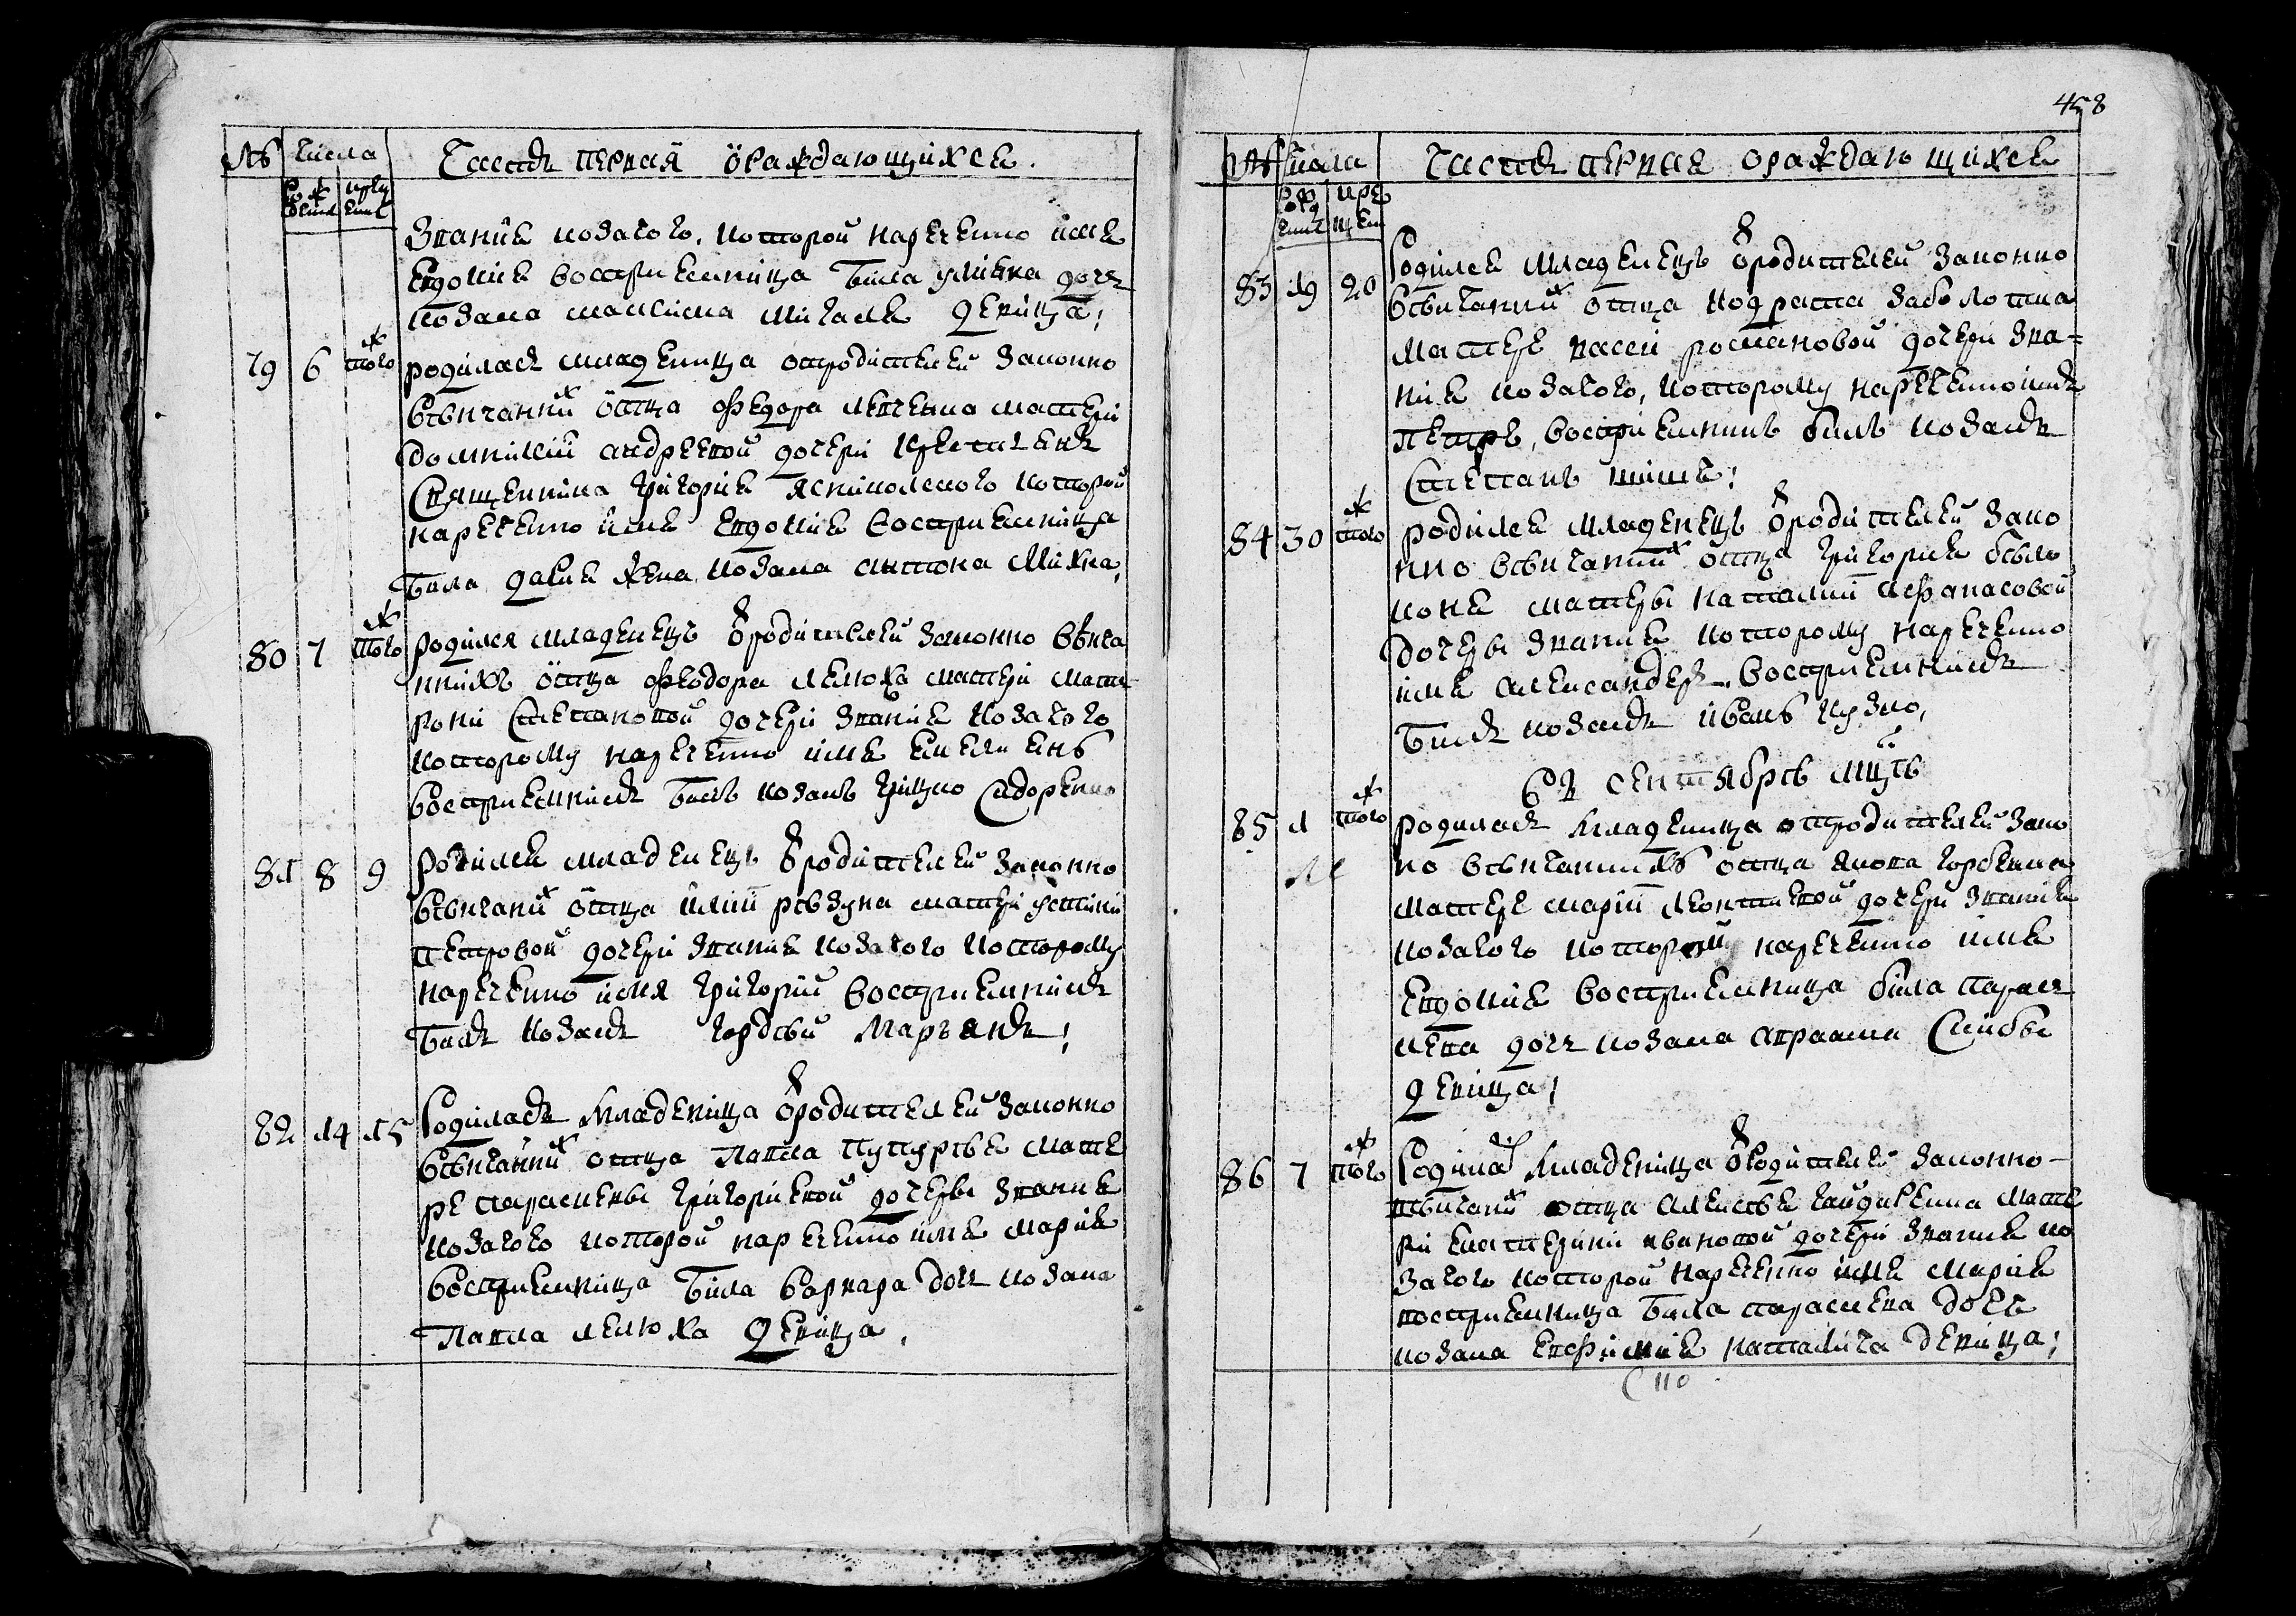 № числа Часть первая о раждающихся.
рож крещ
дения ения
званія козачого, которой наречено имя
Евдокия восприемница била улияна дочь
козака максима дѣвица;
79 6 того родилась младеница от родителей законно
вѣнчанних отца Федора левченка матери
домникии андреевой дочери крестияне
Священника григория которой
наречено имя Евдокия восприемница
била дария жена козака антона Михна,
80 7 того родился младенецъ от родителей законно вѣнча
ннихъ отца Феодора лелюха матери мат
рони Степановой дочери звания козачого
которому наречено имя емелиянъ
восприемникъ билъ козакъ грицко Сидоренко
81 8 9 Родился младенецъ от родителей законно
вѣнчаних отца илии рѣзуна матери устинии
петровой дочери звания козачого которому
наречено имя григорий восприемникъ
билъ козакъ гордѣй Маръянъ;
82 14 15 Родилась младеница от родителей законно
вѣнчанних отца павла пупурѣя мате
ре параскевы григориевой дочеры звания
козачого которой наречено имя мария
восприемница била варвара дочь козака
павла лелюха дѣвица,
458
№ числа Часть первая о раждающихся
рож кре
дения щения
83 19 20 Родился младенецъ от родителей законно
вѣнчанних отца кодрата заболотна
матере васси романовой дочери зва=
ния козачого, которому наречено имя
петръ, восприемникъ билъ козакъ
Степанъ шиш;
84 30 того родился младенецъ от родителей зако
нно вѣнчанних отца григория бѣло
коня матеры наталии афанасовой
дочеры звания которому наречено
имя александер, восприемникъ
билъ козакъ иванъ кузко,
въ сентябрѣ мцѣ
85 1 того родилась младеница от родителей зако
но вѣнчаннихъ отца якова горбенка
матере марии леонтиевой дочери звания
козачого которой наречено имя
Евдокия восприемница била парас
кева дочь козака авраама Скибы
дѣвица;
86 7 того Родилась младеница от родителей законно-
вѣнчаних отца алексѣя гайдаенка мате
ри екатерини ивановой дочери звания ко
зачого которой наречено имя мария
восприемница била параскева дочь
козака евфимия наталича дѣвица;